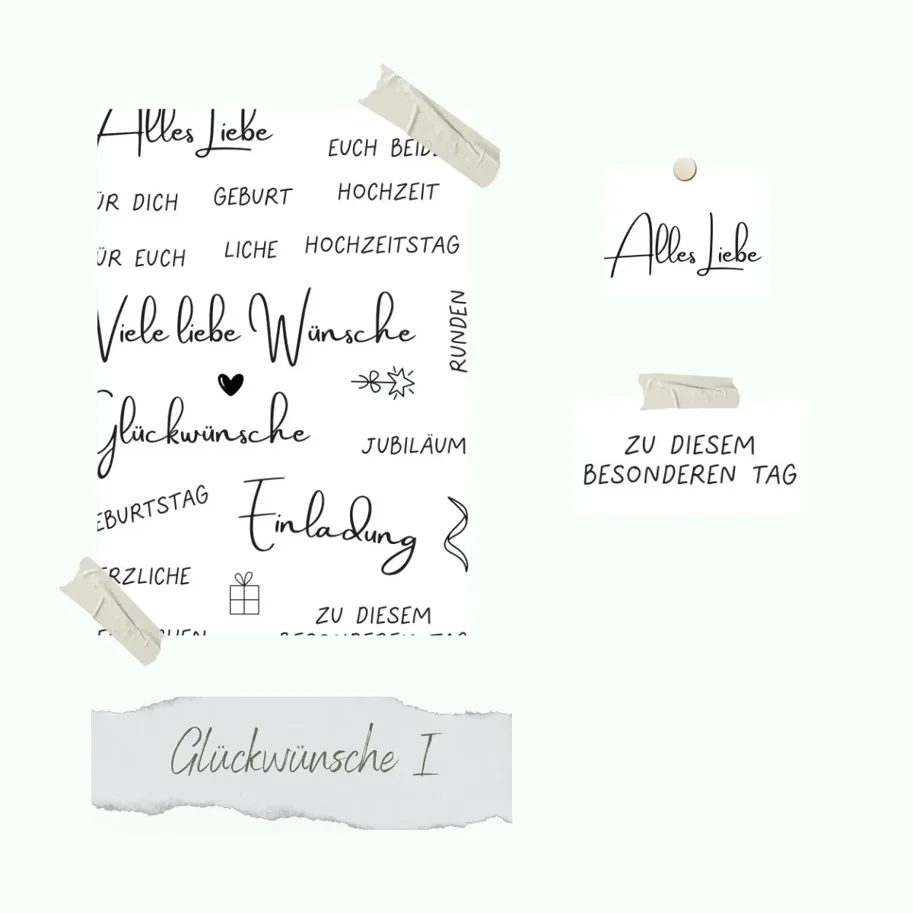 Alles Liebe
EUCH BEIDE
ÜR DICH GEBURT HOCHZEIT
ÜR EUCH LICHE HOCHZEITSTAG
Viele liebe Wünsche
RUNDEN
Glückwünsche
JUBILÄUM
EBURTSTAG
Einladung
ERZLICHE
ZU DIESEM
BESONDEREN TAG
Glückwünsche I
Alles Liebe
ZU DIESEM
BESONDEREN TAG